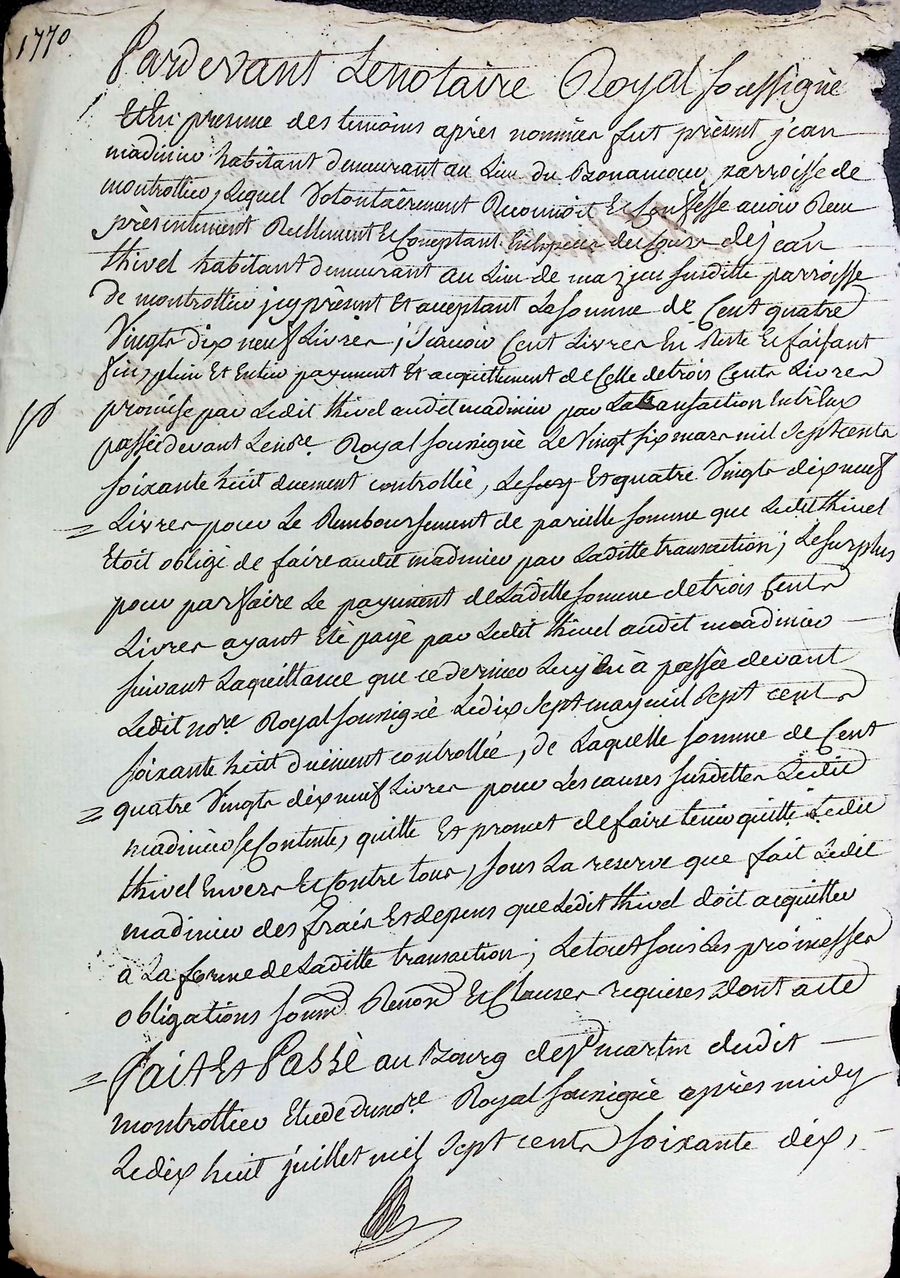 1770
Pardevant Lenotaire Royal soussigné
Et En presence des temoins aprés nommées fut présent jean
madinier habitant demeurant au Lieu du parroisse de
montrottier, Lequel Volontairement Reconnoit Et Confesse avoir Recu
présentement Reellement Et Comptant En Especes de Cours de jean
thivel habitant demeurant au Lieu de mazieu susditte parroisse
de montrottier jcy présent Et aceptant La somme de Cent quatre
Vingts dix neuf Livres; scavoir Cent Livres En Reste Et faisant
fin, plein Et Entier payement Et acquittement de Celle detrois Cents Livres
promise par Ledit thivel audit madinier par La transaction Entr'Eux
passée devant Lenore. Royal sousigné Le Vingt six mars mil sept cents
soixante huit duement controllée, Et quatre Vingts dix neuf
= Livres pour Le Remboursement de pareille somme que Ledit thivel
Etoit obligé de faire audit madinier par Laditte transaction; Le surplus
pour parfaire Le payement de Laditte somme detrois Cents
Livres ayant Eté payé par Ledit thivel audit madinier
suivant Laquittance que ce dernier Luy En à passée devant
Ledit nore Royal sousigné Ledix sept may mil sept cents
soixante huit duëment controllée, de Laquelle somme de Cent
= quatre Vingts dix neuf Livres pour Les causes susdittes Ledit
madinier se Contente, quitte Et promet de faire tenir quitte Ledit
thivel Envers Et Contre tous, sous La reserve que fait Ledit
madinier des frais Et depens que Ledit thivel doit acquitter
à La forme de Laditte transaction; Le tout sous Les promesses
obligations soumd Renond Et Clauses requises Dont acte
= Fait Et Passé au Bourg de st martin dudit
montrottier Etude dunore Royal sousigné après midy
Ledix huit juillet mil sept cents soixante dix,